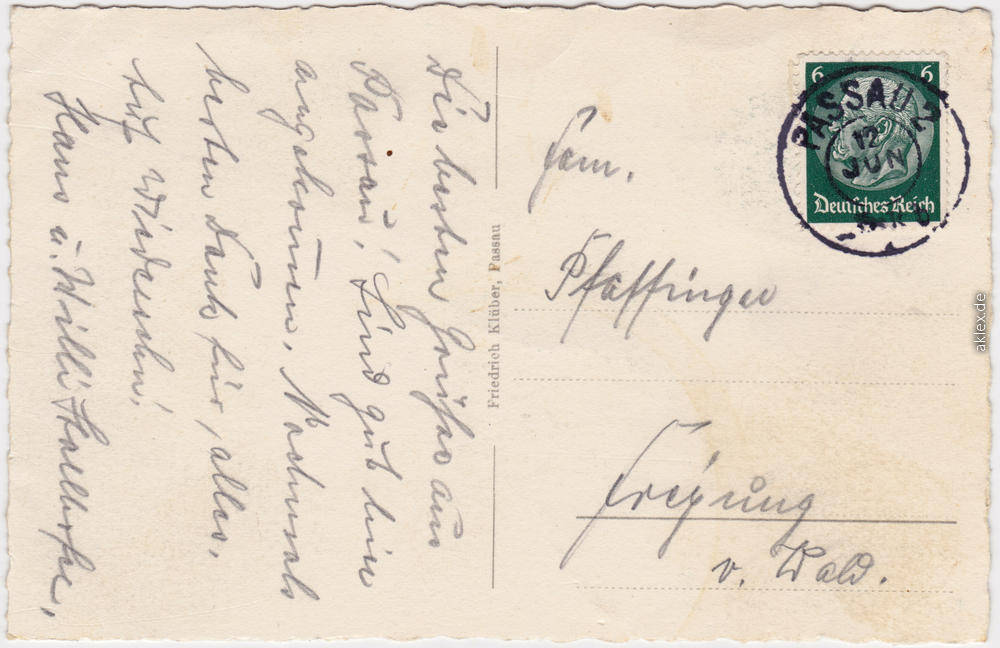 Die besten Grüße aus
Passau! Sind gut hier
angekommen. Nochmals
besten Dank für alles.
Auf Wiedersehn!
Hans u. Willi
Friedrich Klüber, Passau
Fam.
Pfaffinger
Freyung
v. Wald.
6 6
Deutsches Reich
PASSAU 2
12
JUN
aklex.de